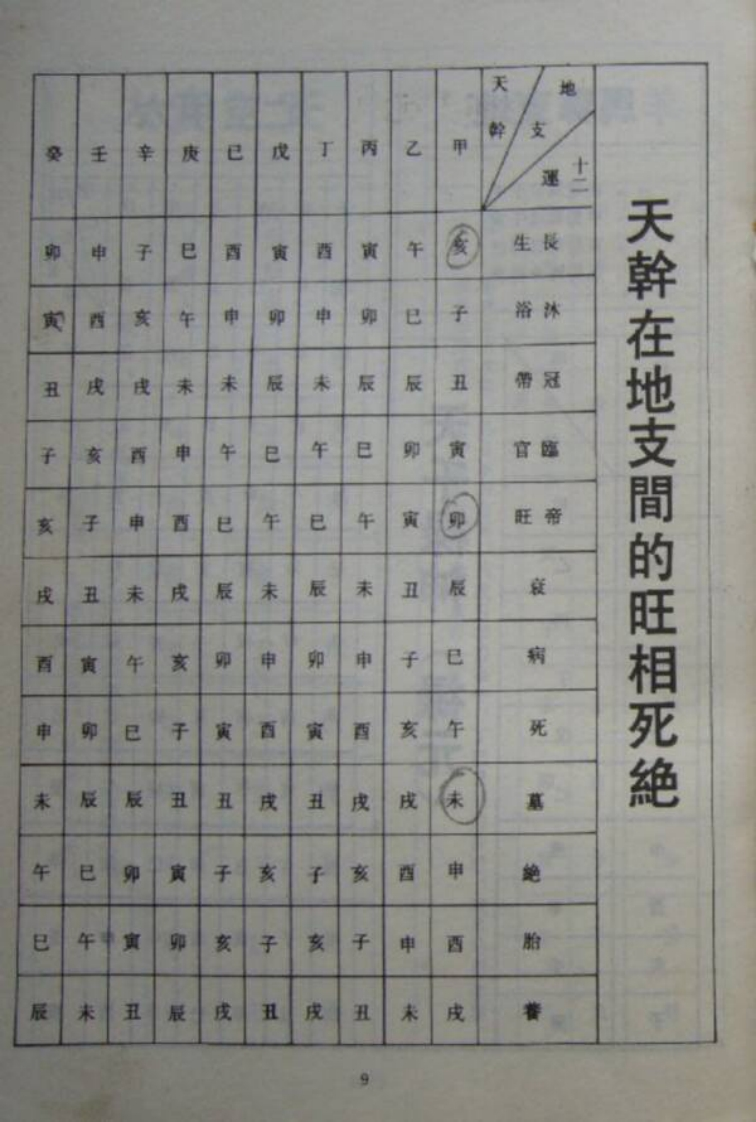 天幹在地支間的旺相死絶
天幹 地支 十二運 甲 乙 丙 丁 戊 巳 庚 辛 壬 癸
長生 亥 午 寅 酉 寅 酉 巳 子 申 卯
沐浴 子 巳 卯 申 卯 申 午 亥 酉 寅
冠帶 丑 辰 辰 未 辰 未 未 戌 戌 丑
臨官 寅 卯 巳 午 巳 午 申 酉 亥 子
帝旺 卯 寅 午 巳 午 巳 酉 申 子 亥
衰 辰 丑 未 辰 未 辰 戌 未 丑 戌
病 巳 子 申 卯 申 卯 亥 午 寅 酉
死 午 亥 酉 寅 酉 寅 子 巳 卯 申
墓 未 戌 戌 丑 戌 丑 丑 辰 辰 未
絶 申 酉 亥 子 亥 子 寅 卯 巳 午
胎 酉 申 子 亥 子 亥 卯 寅 午 巳
養 戌 未 丑 戌 丑 戌 辰 丑 未 辰
9